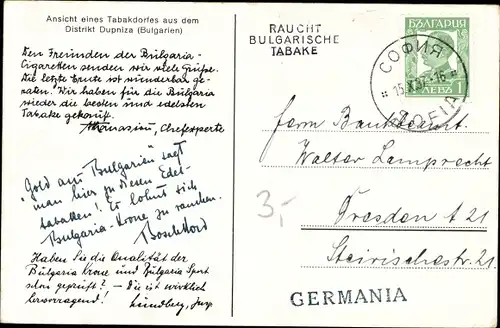 Ansicht eines Tabakdorfes aus dem
Distrikt Dupniza (Bulgarien)
Den Freunden der Bulgaria-
Cigaretten senden wir viele Grüsse.
Die letzte Ernte ist wunderbar ge-
raten. Wir haben für die Bulgaria
wieder die besten und edelsten
Tabake gekauft.
Athanasiou, Chefexperte
"Gold aus Bulgarien" sagt
man hier zu diesen Edel-
tabaken! Es lohnt sich
Bulgaria-Krone zu rauchen.
Haben Sie die Qualität der
Bulgaria Krone und Bulgaria Sport
schon geprüft? – die ist wirklich
hervorragend!
RAUCHT
BULGARISCHE
TABAKE
БЪЛГАРИЯ
ЛЕВЪ 1
СОФИЯ
SOFIA
Herrn Bankbeamt.
Walter Lamprecht
3,-
Dresden A 21
Steirischestr. 21
GERMANIA